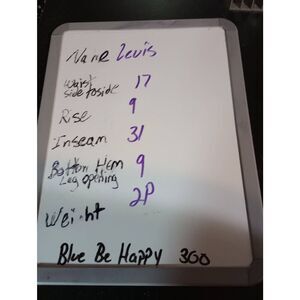 Name Levis
Waist 17
side to side
Rise 9
Inseam 31
Bottom Hem 9
Leg opening
Weight 2P
Blue Be Happy 300